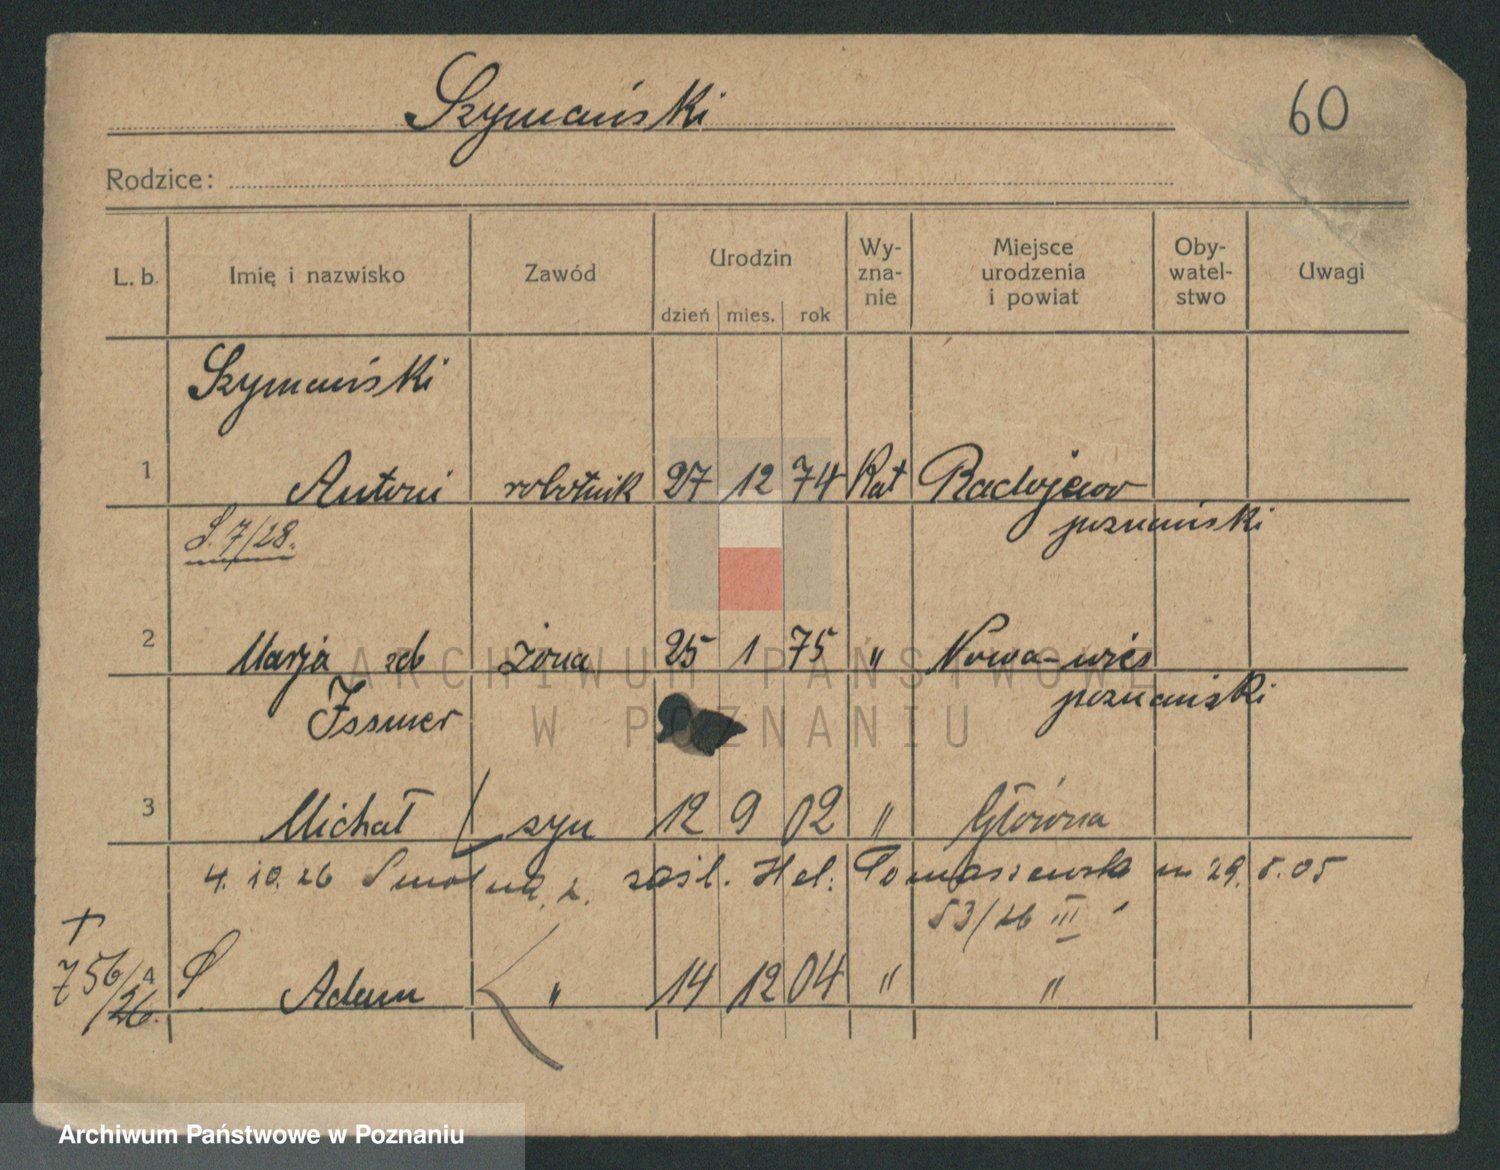 Szymański
60
Rodzice:
L. b. Imię i nazwisko Zawód Urodzin dzień mies. rok Wy-zna-nie Miejsce urodzenia i powiat Oby-watel-stwo Uwagi
Szymański
1 Antoni robotnik 27 12 74 Kat Radojewo
poznański
S. 7/28.
2 Marja żona 25 1 75 " Nowa-wieś
poznański
3 Michał syn 12 9 02 " Główna
4. 10. 26 zaśl. Hel. Tomaszewska
53/26 III
+
756/26. Adam " 14 12 04 " "
ARCHIWUM PAŃSTWOWE
W POZNANIU
Archiwum Państwowe w Poznaniu